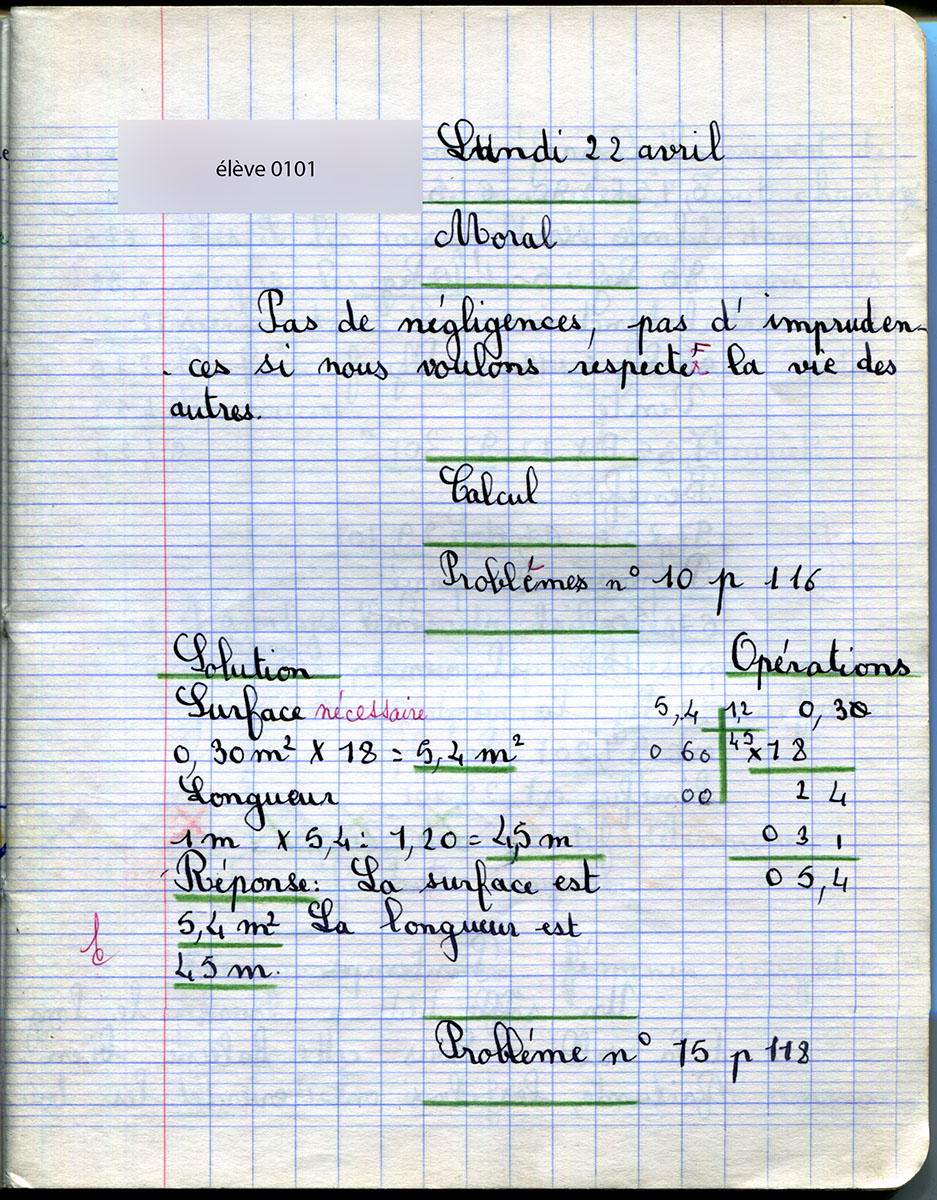 élève 0101
Lundi 22 avril
Moral
Pas de négligences, pas d'impruden-
ces si nous voulons réspecter la vie des
autres.
Calcul
Problémes n° 10 p 116
Solution
Opérations
Surface nécessaire
5,4 | 1,2
0,30
0,30 m² X 18 = 5,4 m²
0 60 | 45
x 18
Longueur
00
2 4
1 m X 5,4 : 1,20 = 4,5 m
0 3 ,
Réponse: La surface est
0 5,4
5,4 m² La longueur est
b
45 m.
Probléme n° 15 p 118